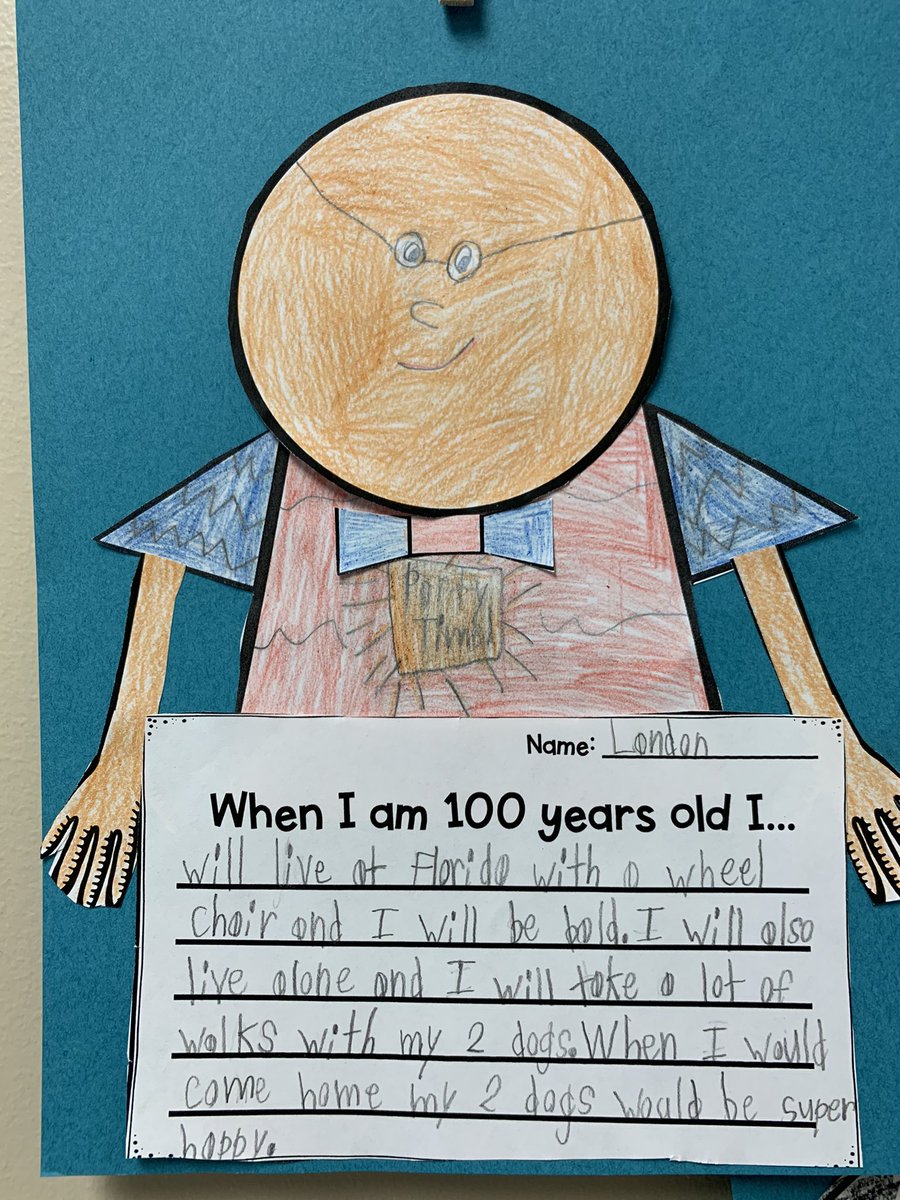 Party
Time!
Name: London
When I am 100 years old I...
will live at Florida with a wheel
chair and I will be bald. I will also
live alone and I will take a lot of
walks with my 2 dogs. When I would
come home my 2 dogs would be super
happy.